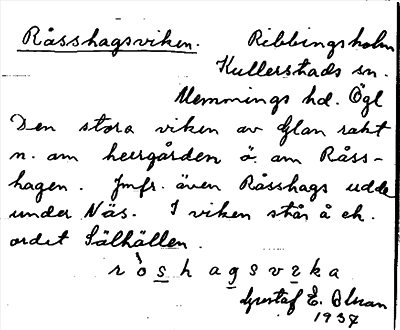 Råsshagsviken. Ribbingsholm
Kullerstads sn.
Memmings hd. Ögl
Den stora viken av Glan rakt
n. om herrgården ö. om Råss-
hagen. Jmfr. även Råsshags udde
under Näs. I viken står å ek.
ordet Sälhällen.
r ò s h a g s v ɩ k a
Gustaf E. Olsson
1937